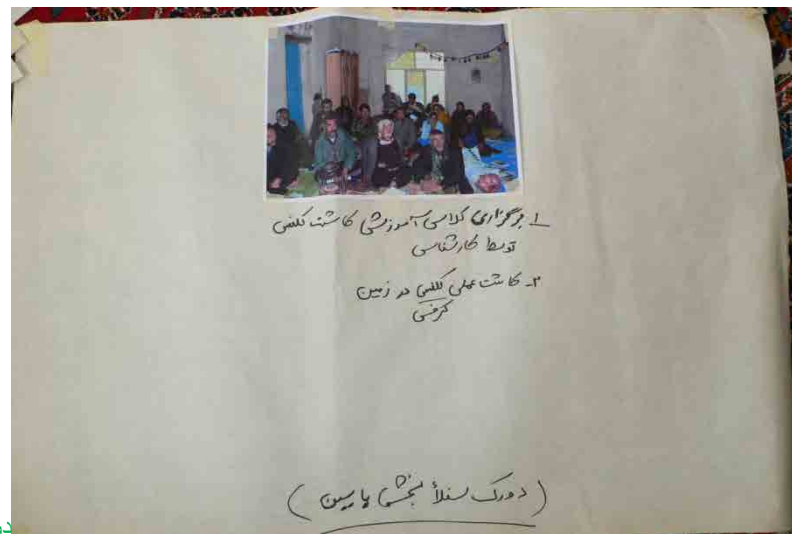 ۱ـ برگزاری کلاس آموزشی کاشت کلخس
توسط کارشناس
۲ـ کاشت عملی کلخس در زمین
کرفس
(دورک سفلا بخش پایین)